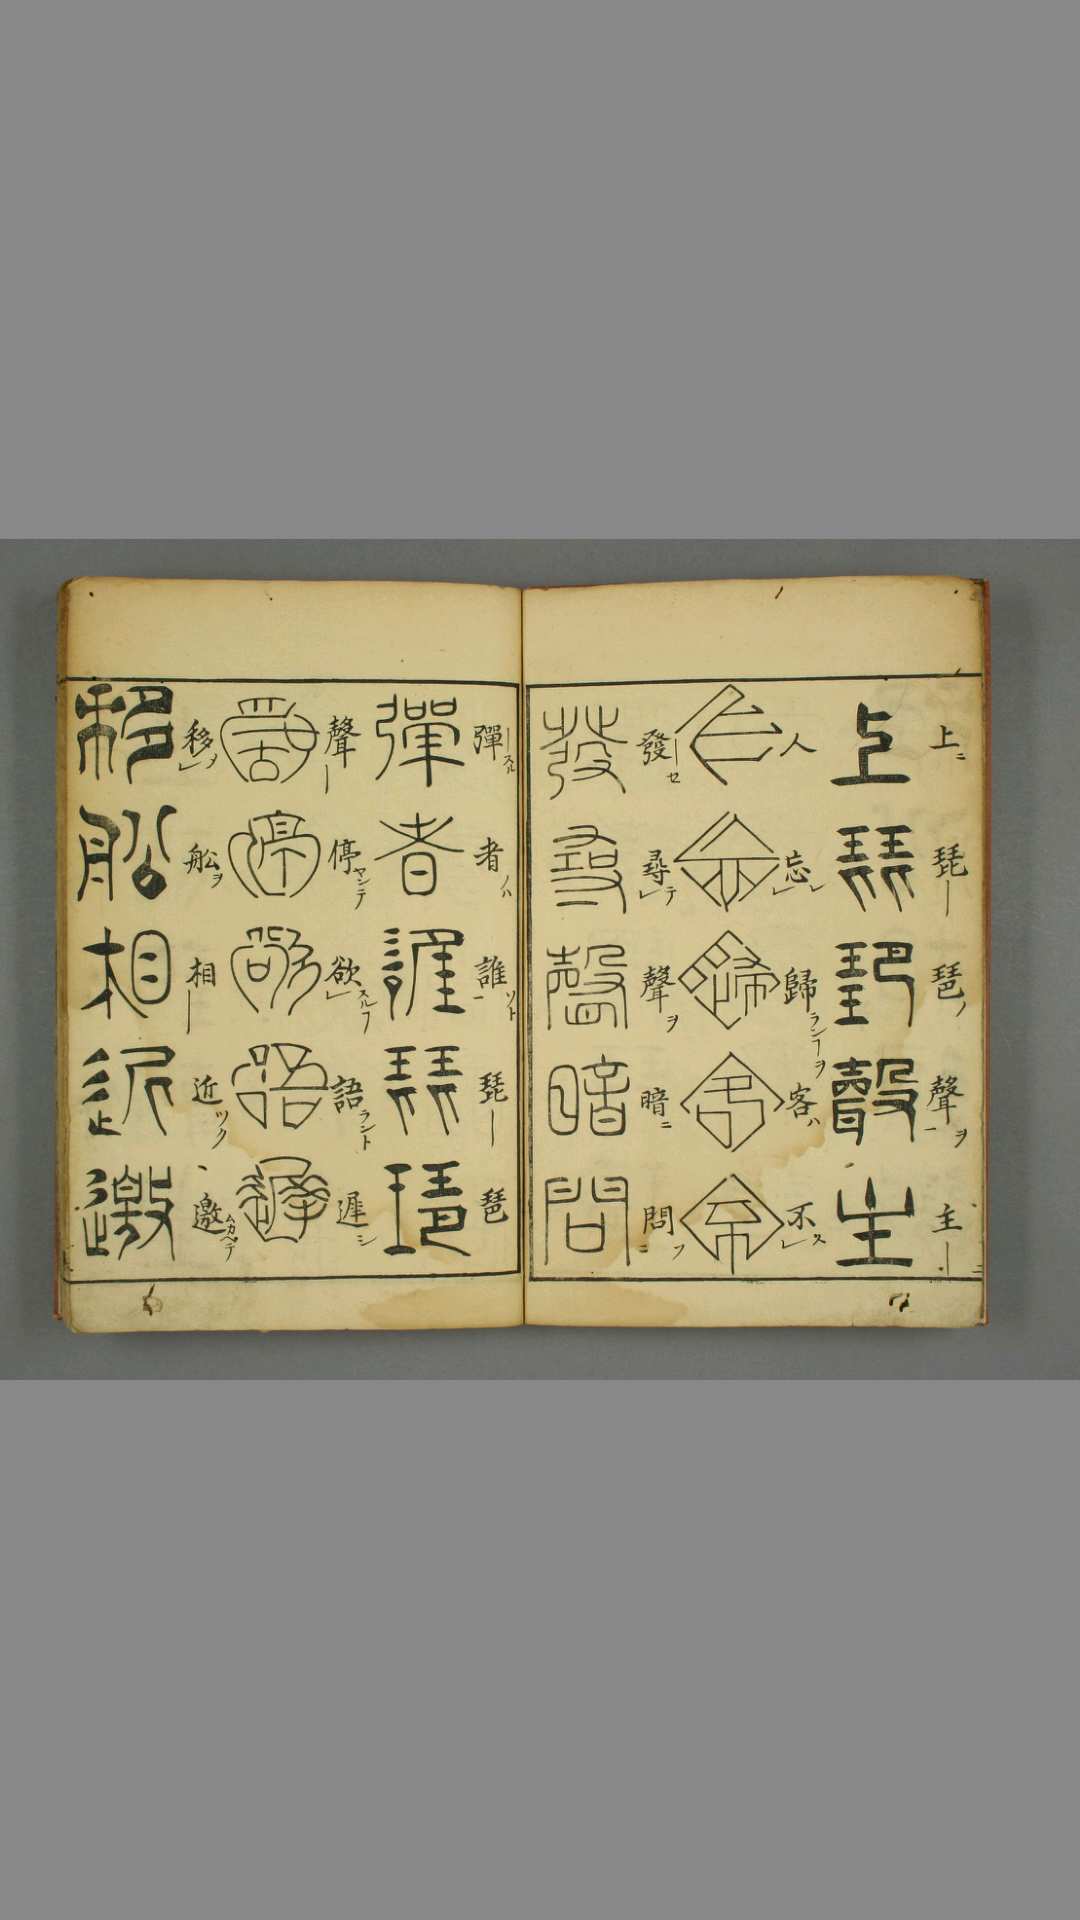 上琵琶聲主
上ニ琵琶ノ聲ヲ主
人忘歸客不
人忘歸ランヲ客ハ不ス
發尋聲暗問
發セ尋テ聲ヲ暗ニ問フ
彈者誰琵琶
彈スル者ノハ誰ソト琵琶
聲停欲語遲
聲停ヤンテ欲スル語ラント遲シ
移船相近邀
移ノ舩ヲ相近ツク邀ムカヘテ